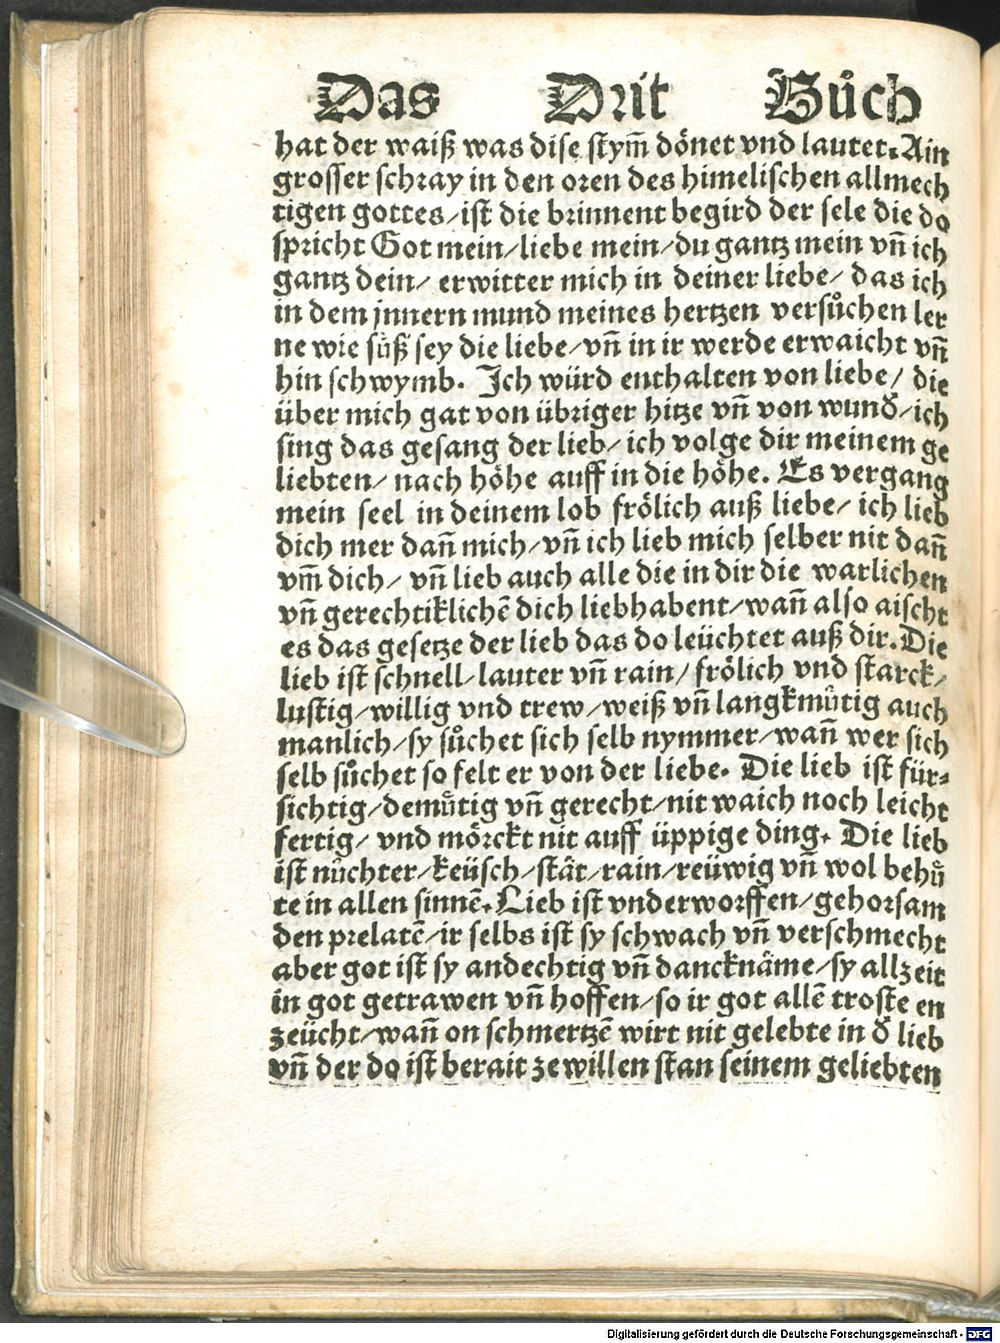 Das Drit Bůch
hat der waiß was dise stym̄ dönet vnd lautet. Ain
grosser schray in den oren des himelischen allmech
tigen gottes/ ist die brinnent begird der sele die do
spricht Got mein/ liebe mein/ du gantz mein vn̄ ich
gantz dein/ erwitter mich in deiner liebe/ das ich
in dem jnnern mund meines hertzen versůchen ler
ne wie süß sey die liebe/ vn̄ in ir werde erwaicht vn̄
hin schwymb. Ich würd enthalten von liebe/ die
über mich gat von übriger hitze vn̄ von wunď/ ich
sing das gesang der lieb/ ich volge dir meinem ge
liebten/ nach höhe auff in die höhe. Es vergang
mein seel in deinem lob frölich auß liebe/ ich lieb
dich mer dan̄ mich/ vn̄ ich lieb mich selber nit dan̄
vm̄ dich/ vn̄ lieb auch alle die in dir die warlichen
vn̄ gerechtiklichē dich liebhabent/ wan̄ also aischt
es das gesetze der lieb das do leüchtet auß dir. Die
lieb ist schnell/ lauter vn̄ rain/ frölich vnd starck/
lustig/ willig vnd trew/ weiß vn̄ langkmůtig auch
manlich/ sy sůchet sich selb nymmer/ wan̄ wer sich
selb sůchet so felt er von der liebe. Die lieb ist für⸗
sichtig/ demůtig vn̄ gerecht/ nit waich noch leicht
fertig/ vnd mörckt nit auff üppige ding. Die lieb
ist nůchter/ keüsch/ stät/ rain/ reüwig vn̄ wol behů
te in allen sinnē. Lieb ist vnderworffen/ gehorsam
den prelatē/ ir selbs ist sy schwach vn̄ verschmecht
aber got ist sy andechtig vn̄ dancknäme/ sy allzeit
in got getrawen vn̄ hoffen/ so ir got allē troste en
zeücht/ wan̄ on schmertzē wirt nit gelebte in ď lieb
vn̄ der do ist berait ze willen stan seinem geliebten
Digitalisierung gefördert durch die Deutsche Forschungsgemeinschaft - DFG